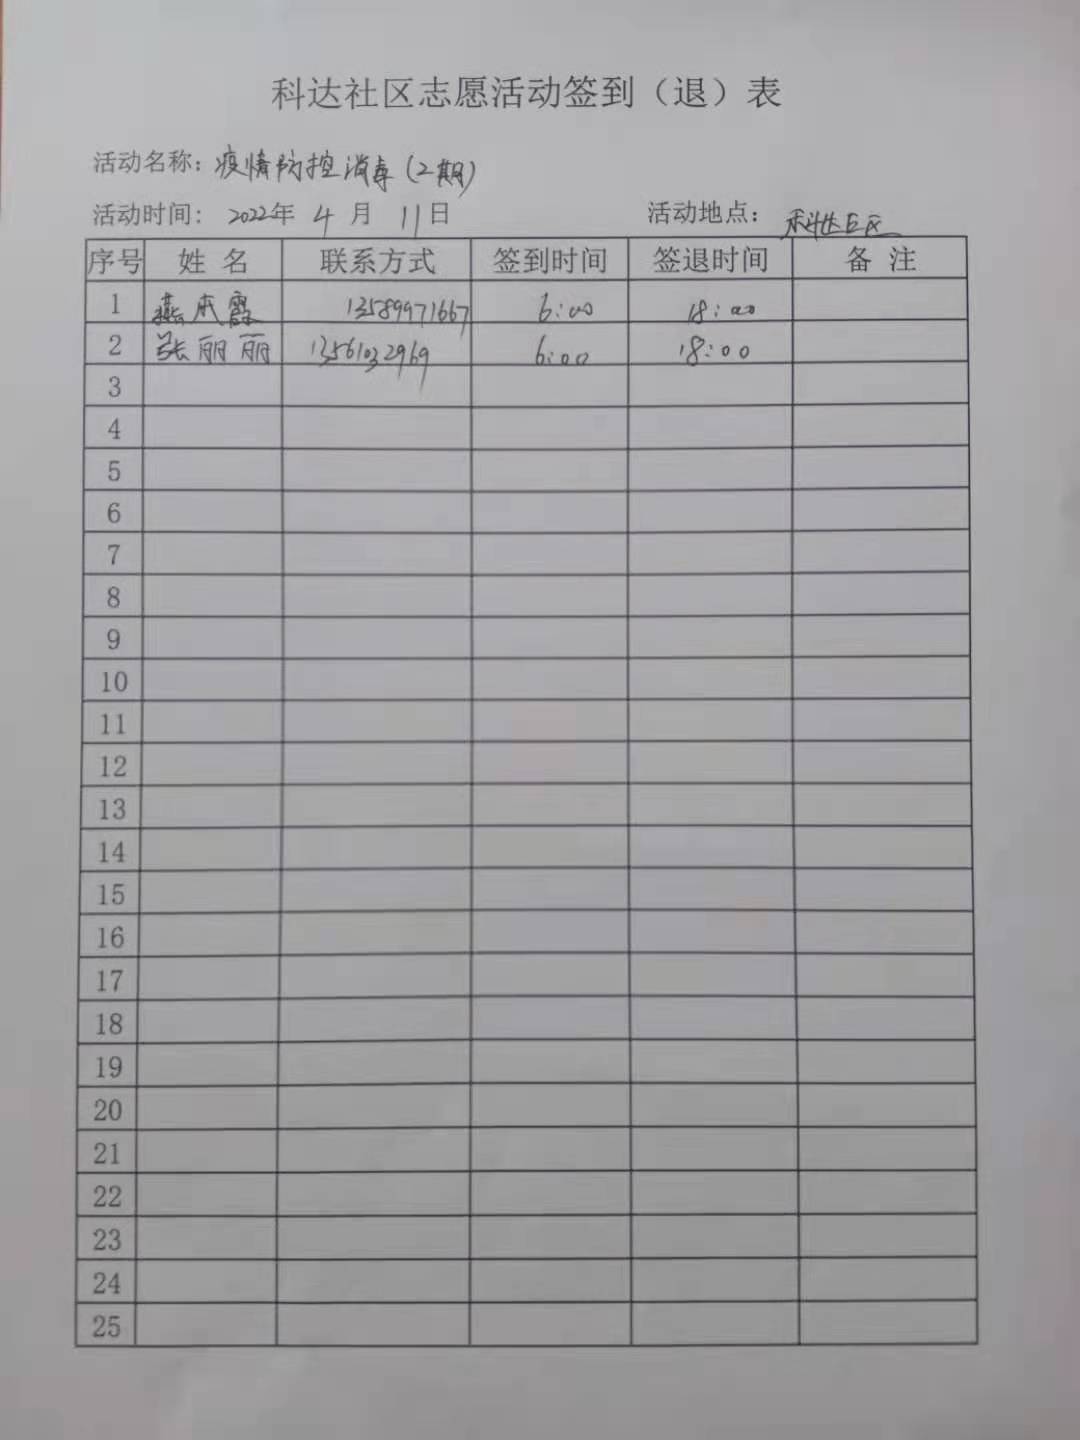 科达社区志愿活动签到（退）表
活动名称：疫情防控消毒（2期）
活动时间：2022年 4 月 11日 活动地点：科达社区
序号 姓 名 联系方式 签到时间 签退时间 备 注
1 13589971667 6:00 18:00
2 张丽丽 13561032969 6:00 18:00
3
4
5
6
7
8
9
10
11
12
13
14
15
16
17
18
19
20
21
22
23
24
25